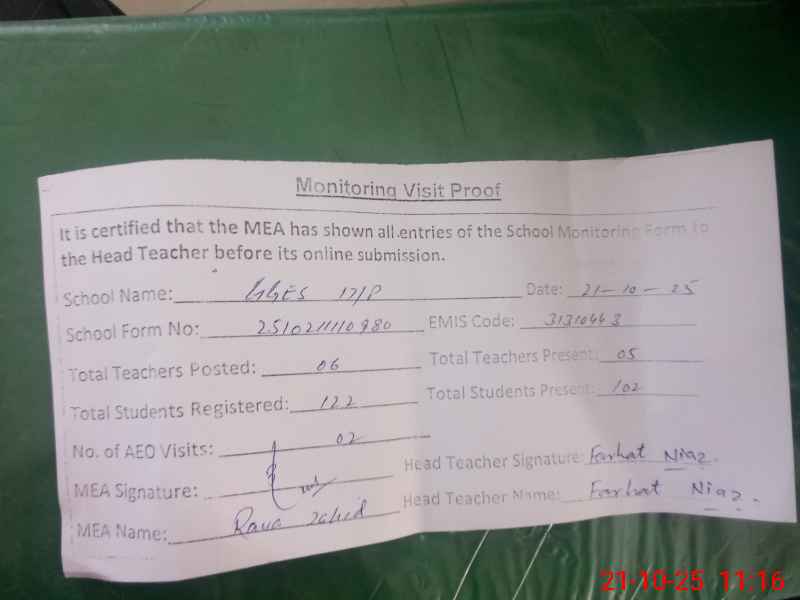 Monitoring Visit Proof
It is certified that the MEA has shown all entries of the School Monitoring Form to
the Head Teacher before its online submission.
School Name: GGES 17/P Date: 21-10-25
School Form No: 251021110980 EMIS Code: 31310463
Total Teachers Posted: 06 Total Teachers Present: 05
Total Students Registered: 122 Total Students Present: 102
No. of AEO Visits: 02
MEA Signature: Head Teacher Signature: Farhat Niaz.
MEA Name: Rana Zahid Head Teacher Name: Farhat Niaz.
21-10-25 11:16